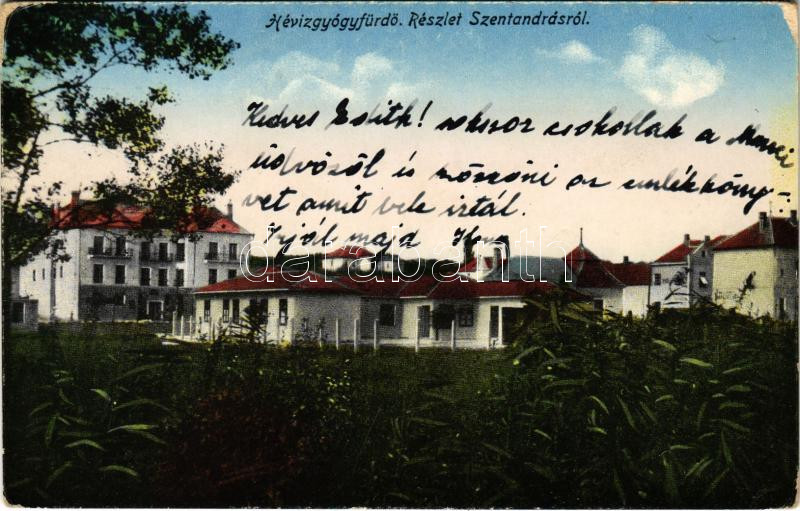 Hévizgyógyfürdő. Részlet Szentandrásról.
Kedves Edith! sokszor csokollak a Marci
üdvözöl és köszöni az emlékköny-
vet amit vele irtál.
Irjál majd
darabanth